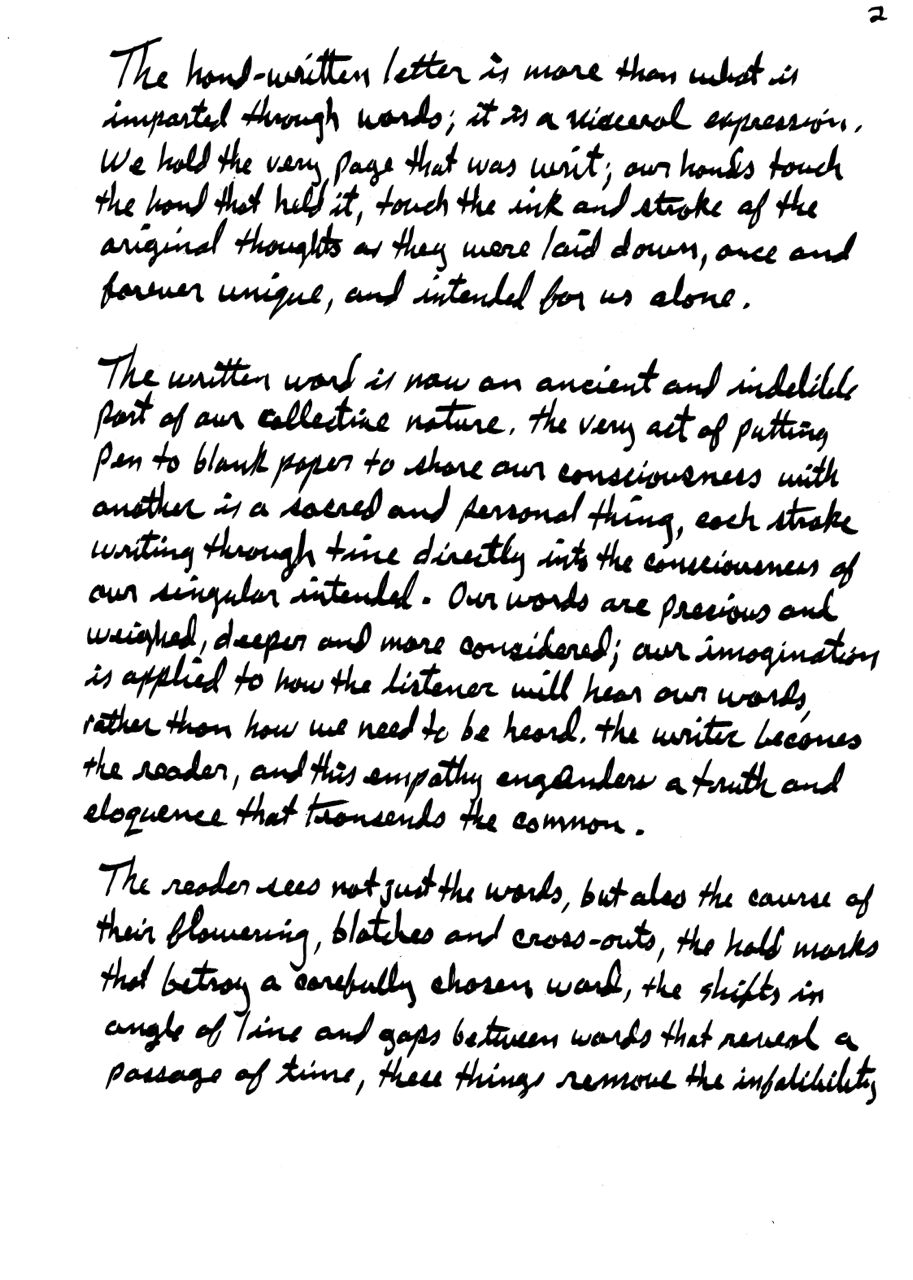 2
The hand-written letter is more than what is
imparted through words; it is a visceral expression.
We hold the very page that was writ; our hands touch
the hand that held it, touch the ink and stroke of the
original thoughts as they were laid down, once and
forever unique, and intended for us alone.
The written word is now an ancient and indelible
part of our collective nature. The very act of putting
pen to blank paper to share our consciousness with
another is a sacred and personal thing, each stroke
writing through time directly into the consciousness of
our singular intended. Our words are precious and
weighed, deeper and more considered; our imagination
is applied to how the listener will hear our words,
rather than how we need to be heard. The writer becomes
the reader, and this empathy engenders a truth and
eloquence that transends the common.
The reader sees not just the words, but also the course of
their flowering, blotches and cross-outs, the hold marks
that betray a carefully chosen word, the shifts in
angle of line and gaps between words that reveal a
passage of time, these things remove the infalibility